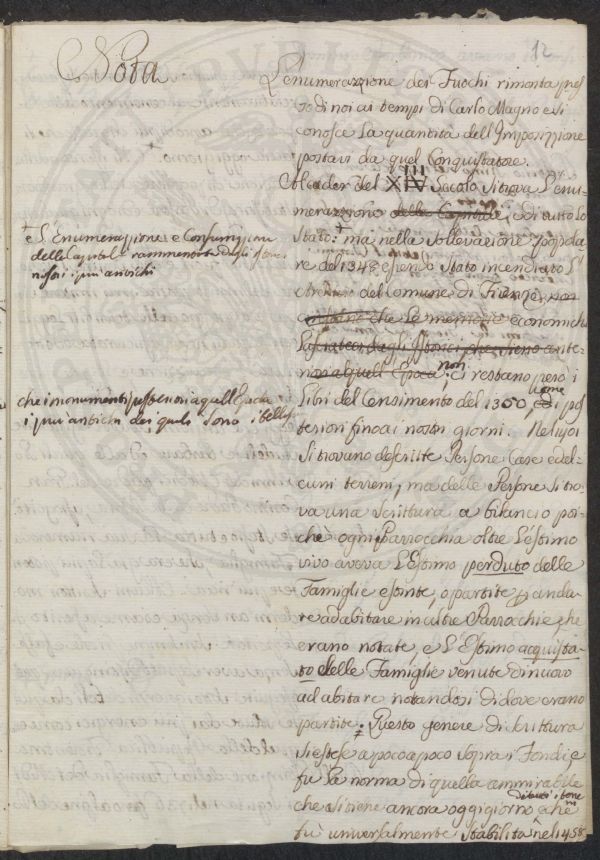 12
Nota
L'enumerazzione dei Fuochi rimonta pres
so di noi ai tempi di Carlo Magno e si
conosce la quantità dell'Imposizzione
ipostavi da quel Conquistatore.
Al cader del XIV Secolo si trova l'enu
merazzione della Capitale, e di tutto lo
Stato: + ma nella sollevazione popola
re del 1348 essendo stato incendiato l'
Archivio del Comune di Firenze, non
che le memorie economiche
lasciateci dagli Istorici, che sieno ante-
riori a quell'Epoca, non ci restano però i
Libri del Censimento del 1350, e pos
teriori fino ai nostri giorni. Nei quali
si trovano descritte Persone Case ed al-
cuni terreni, ma delle Persone si tro-
va una scrittura a bilancio poi-
chè ogni Parrocchia oltre l'estimo
vivo aveva l'Estimo perduto delle
Famiglie estinte, o partite p anda-
re ad abitare in altre Parrocchie, che
erano notate, e l'Estimo acquista-
to delle Famiglie venute di nuovo
ad abitare notandosi di dove erano
partite: Questo genere di scrittura
si estese a poco a poco sopra i Fondi e
fu la norma di quella ammirabile
che si tiene ancora oggi giorno, e che
di tutti i beni
fu universalmente stabilita nel 1458
+ e l'Enumerazzione e Consumzioni
della Capitale rammentate dagli Isto
rici i più antichi
che i monumenti posteriori a quell'Epoca
i più antichi dei quali sono i